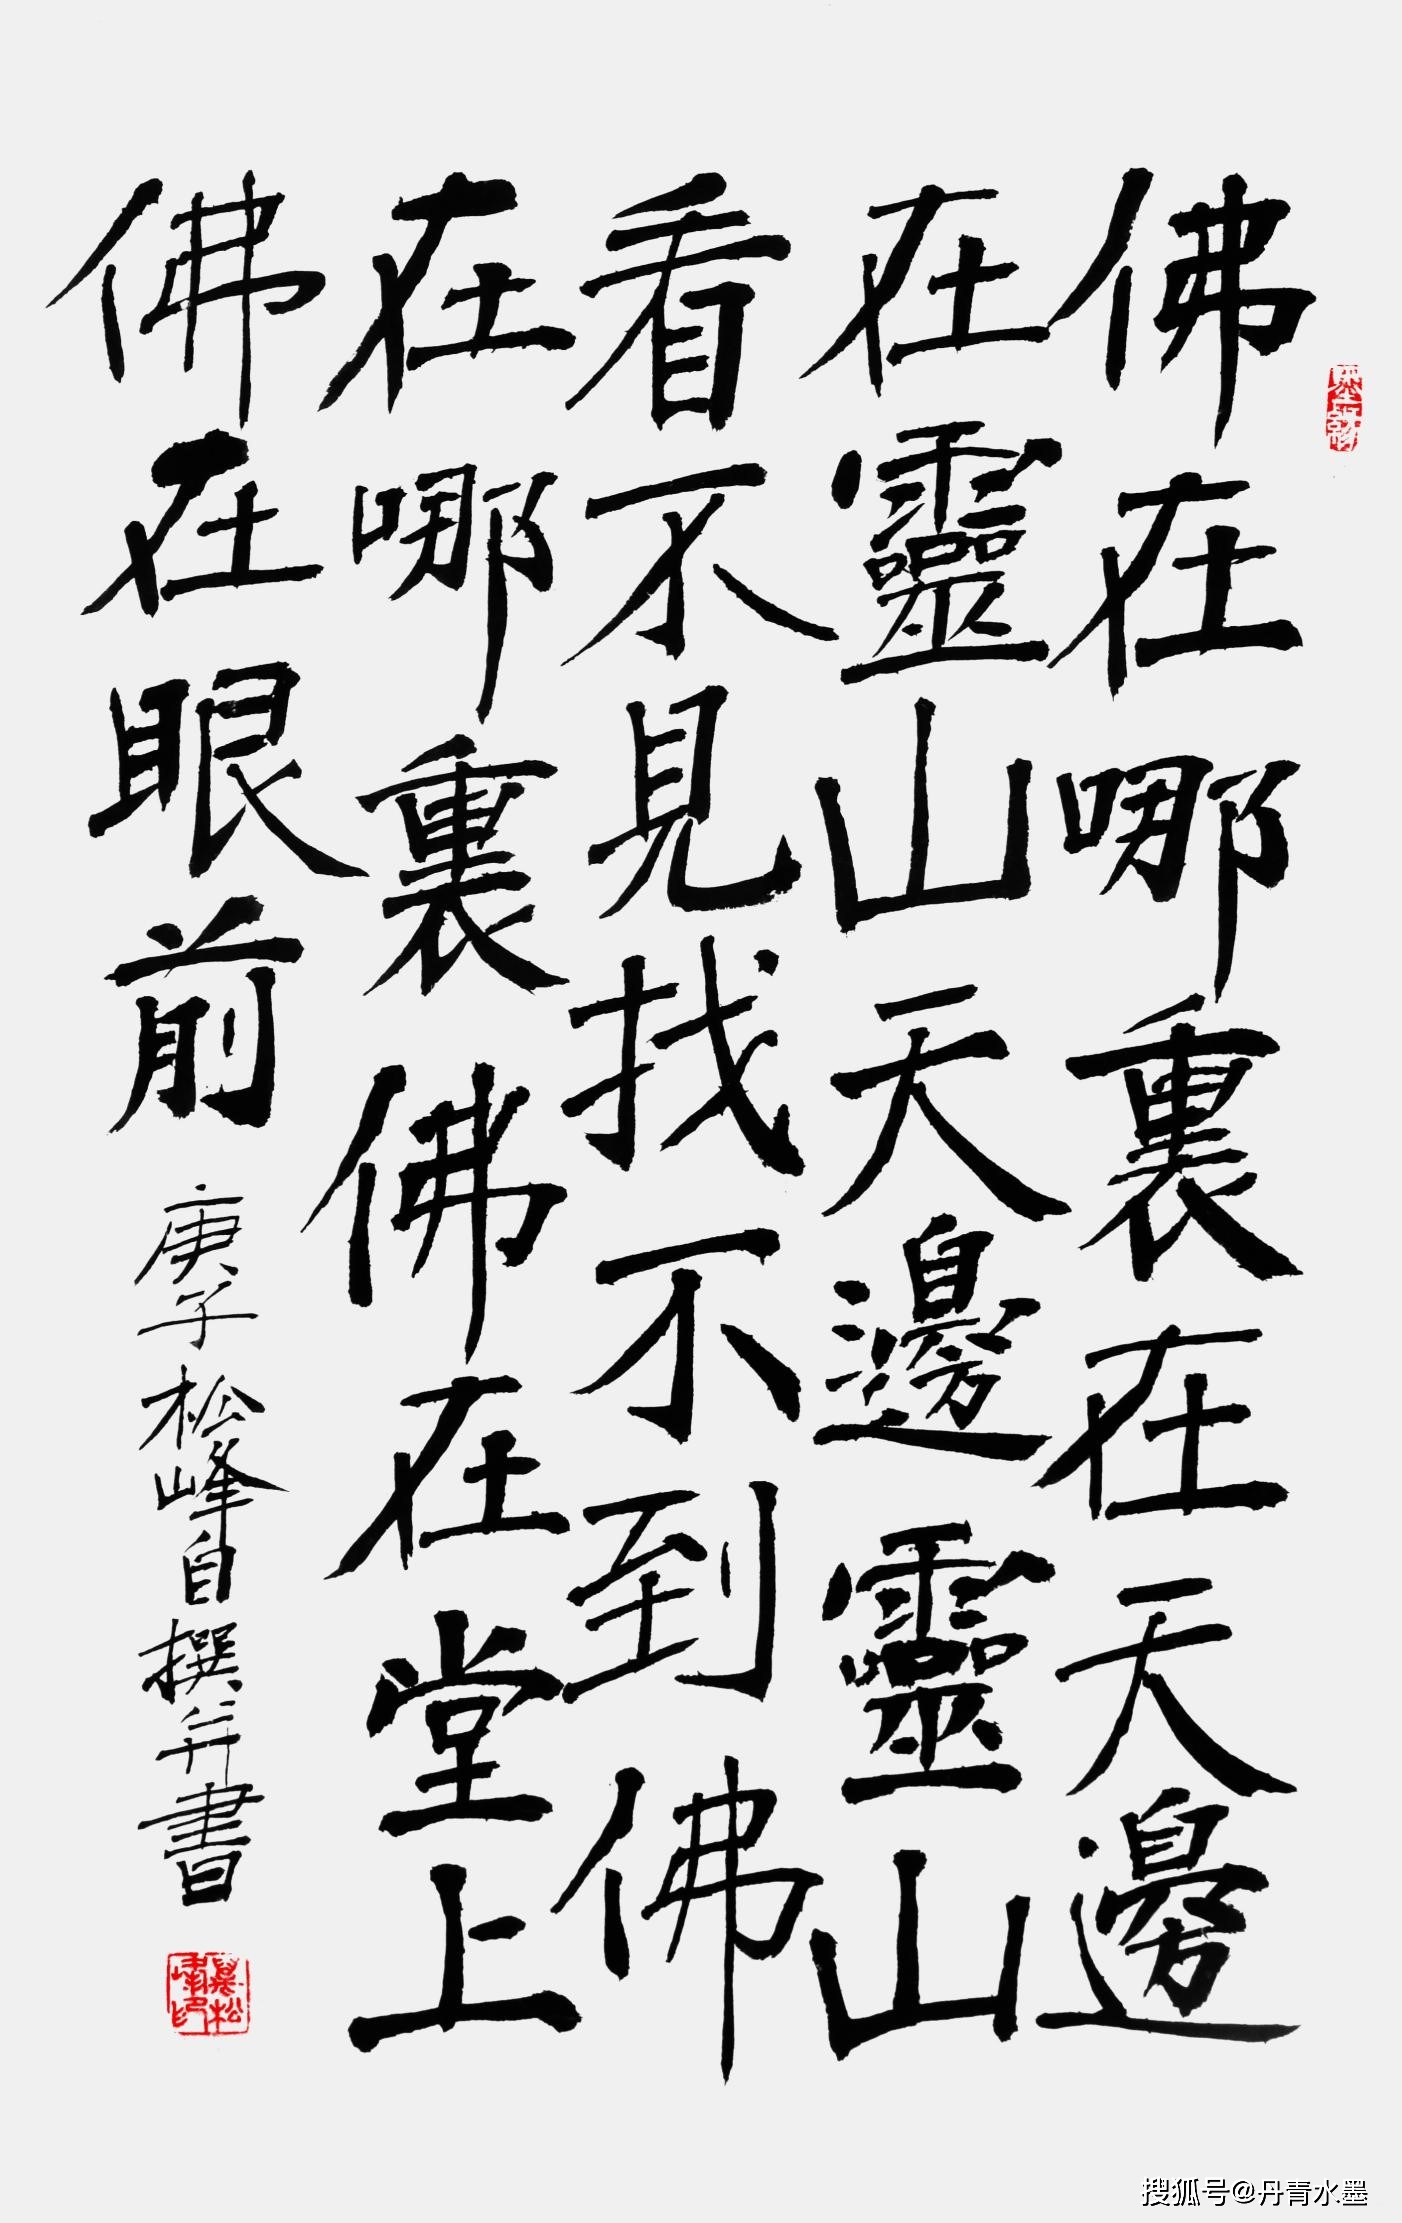 佛在哪裏在天邊
在靈山天邊靈山
看不見找不到佛
在哪裏佛在堂上
佛在眼前
庚子松峰自撰并書
搜狐号@丹青水墨